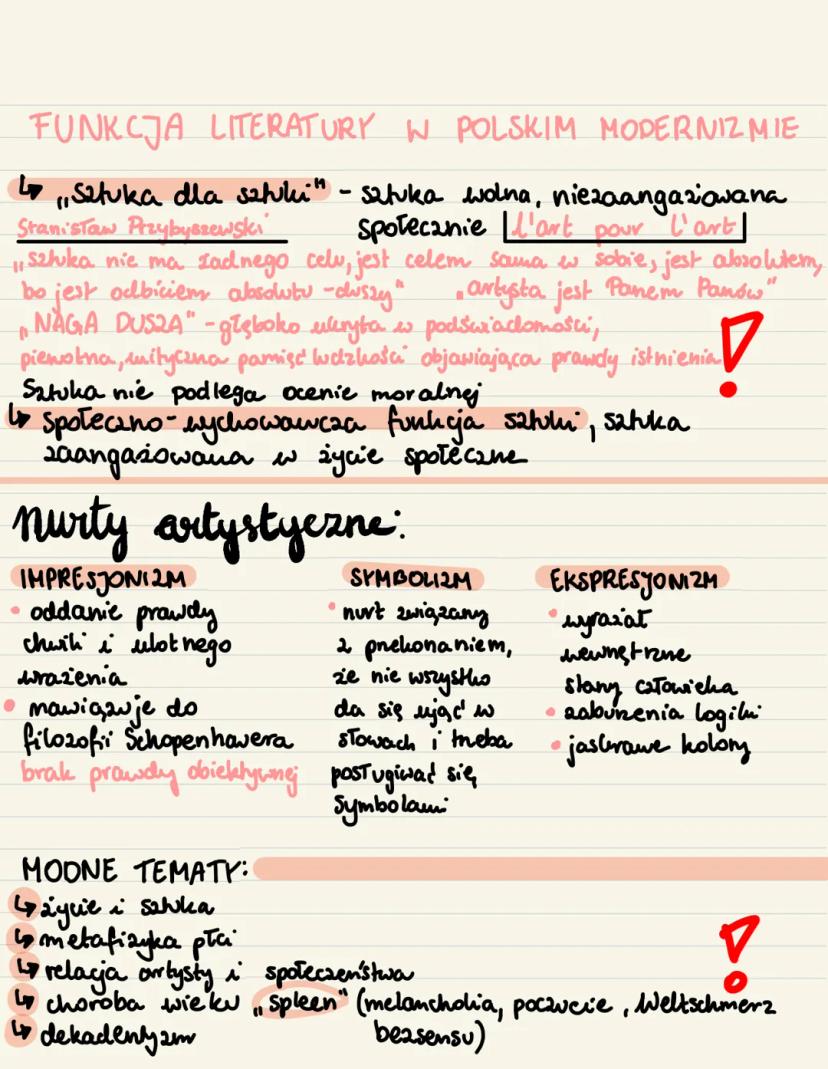 FUNKCJA LITERATURY W POLSKIM MODERNIZMIE
↳ „Sztuka dla sztuki" - sztuka wolna, niezaangażowana
Stanisław Przybyszewski społecznie l'art pour l'art
„sztuka nie ma żadnego celu, jest celem sama w sobie, jest absolutem,
bo jest odbiciem absolutu - duszy" „artysta jest Panem Panów"
„NAGA DUSZA" - głęboko ukryta w podświadomości,
pierwotna, mityczna pamięć ludzkości objawiająca prawdy istnienia
Sztuka nie podlega ocenie moralnej
↳ społeczno-wychowawcza funkcja sztuki, sztuka
zaangażowana w życie społeczne
Nurty artystyczne:
IMPRESJONIZM
• oddanie prawdy
chwili i ulotnego
wrażenia
• nawiązuje do
filozofii Schopenhauera
brak prawdy obiektywnej
SYMBOLIZM
• nurt związany
z przekonaniem,
że nie wszystko
da się ująć w
słowach i trzeba
posługiwać się
symbolami
EKSPRESJONIZM
• wyrażał
wewnętrzne
stany człowieka
• zaburzenia logiki
• jaskrawe kolory
MODNE TEMATY:
↳ życie i sztuka
↳ metafizyka płci
↳ relacja artysty i społeczeństwa
↳ choroba wieku „spleen" (melancholia, poczucie , Weltschmerz
bezsensu)
↳ dekadentyzm